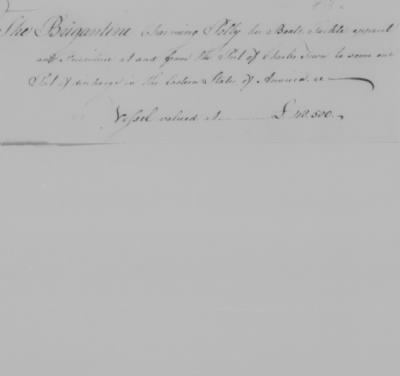 The Brigantine Charming Polly her Boats Tackle apparel
and Furniture at and from the Port of Charles Town to some one
Port of in the Eastern States of America
Vessel valued at £40,500.